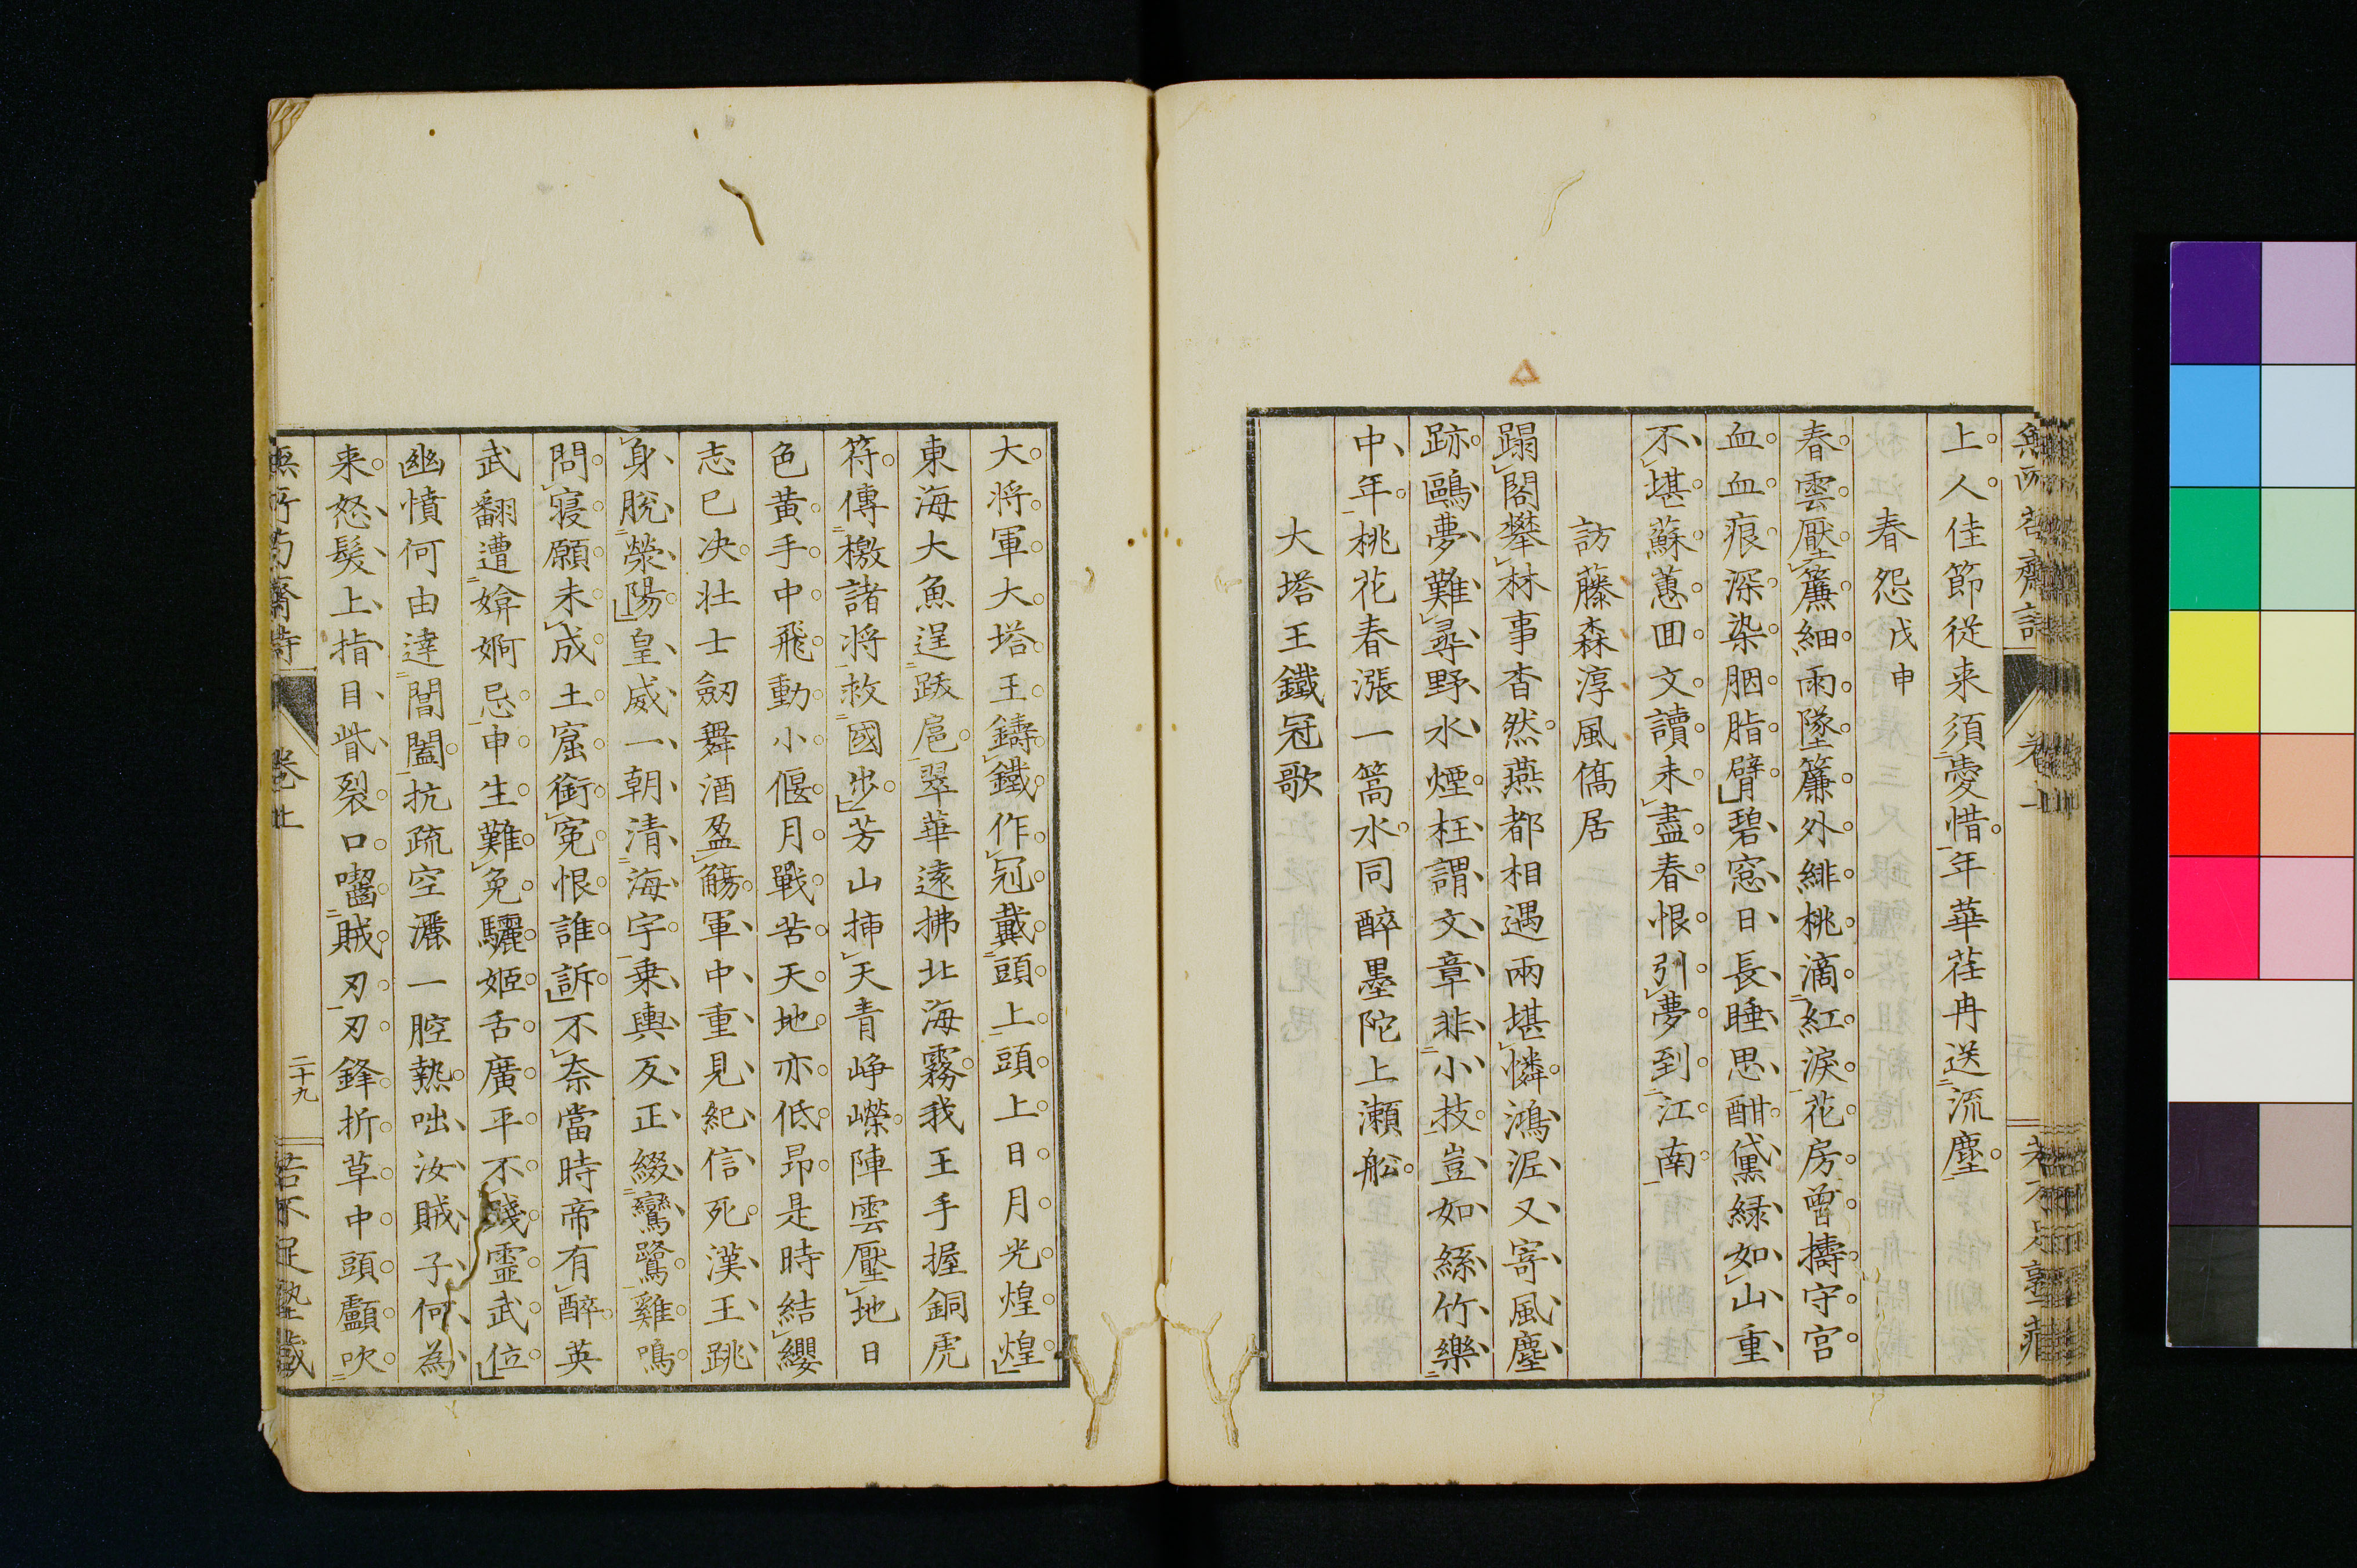 上人佳節従来須愛惜年華荏冉送流塵
春怨戊申
春雲壓簾細雨墜簾外緋桃滴紅涙花房曽擣守宮
血血痕深染胭脂臂碧窓日長睡思酣黛緑如山重
不堪蘇蕙回文讀未盡春恨引夢到江南
訪藤森淳風僑居
蹋閣攀林事杳然燕都相遇兩堪憐鴻泥又寄風塵
跡鷗夢難尋野水煙枉謂文章非小技豈如絲竹樂
中年桃花春漲一篙水同醉墨陀上瀬舩
大塔王鐵冠歌
大将軍大塔王鑄鐵作冠戴頭上頭上日月光煌煌
東海大魚逞跋扈翠華遠拂北海霧我王手握銅虎
符傳檄諸将救國步芳山挿天青崢嶸陣雲壓地日
色黄手中飛動小偃月戰苦天地亦低昂是時結纓
志已决壮士劒舞酒盈觴軍中重見紀信死漢王跳
身脱滎陽皇威一朝清海宇乗輿反正綴鸞鷺雞鳴
問寝願未成土窟銜寃恨誰訴不奈當時帝有醉英
武翻遭媕婀忌申生難免驪姬舌廣平不殘靈武位
幽憤何由達閶闔抗疏空灑一腔熱咄汝賊子何為
来怒髮上指目眥裂口囓賊刃刃鋒折草中頭顱吹
無所苟齋詩
巻上
二十九